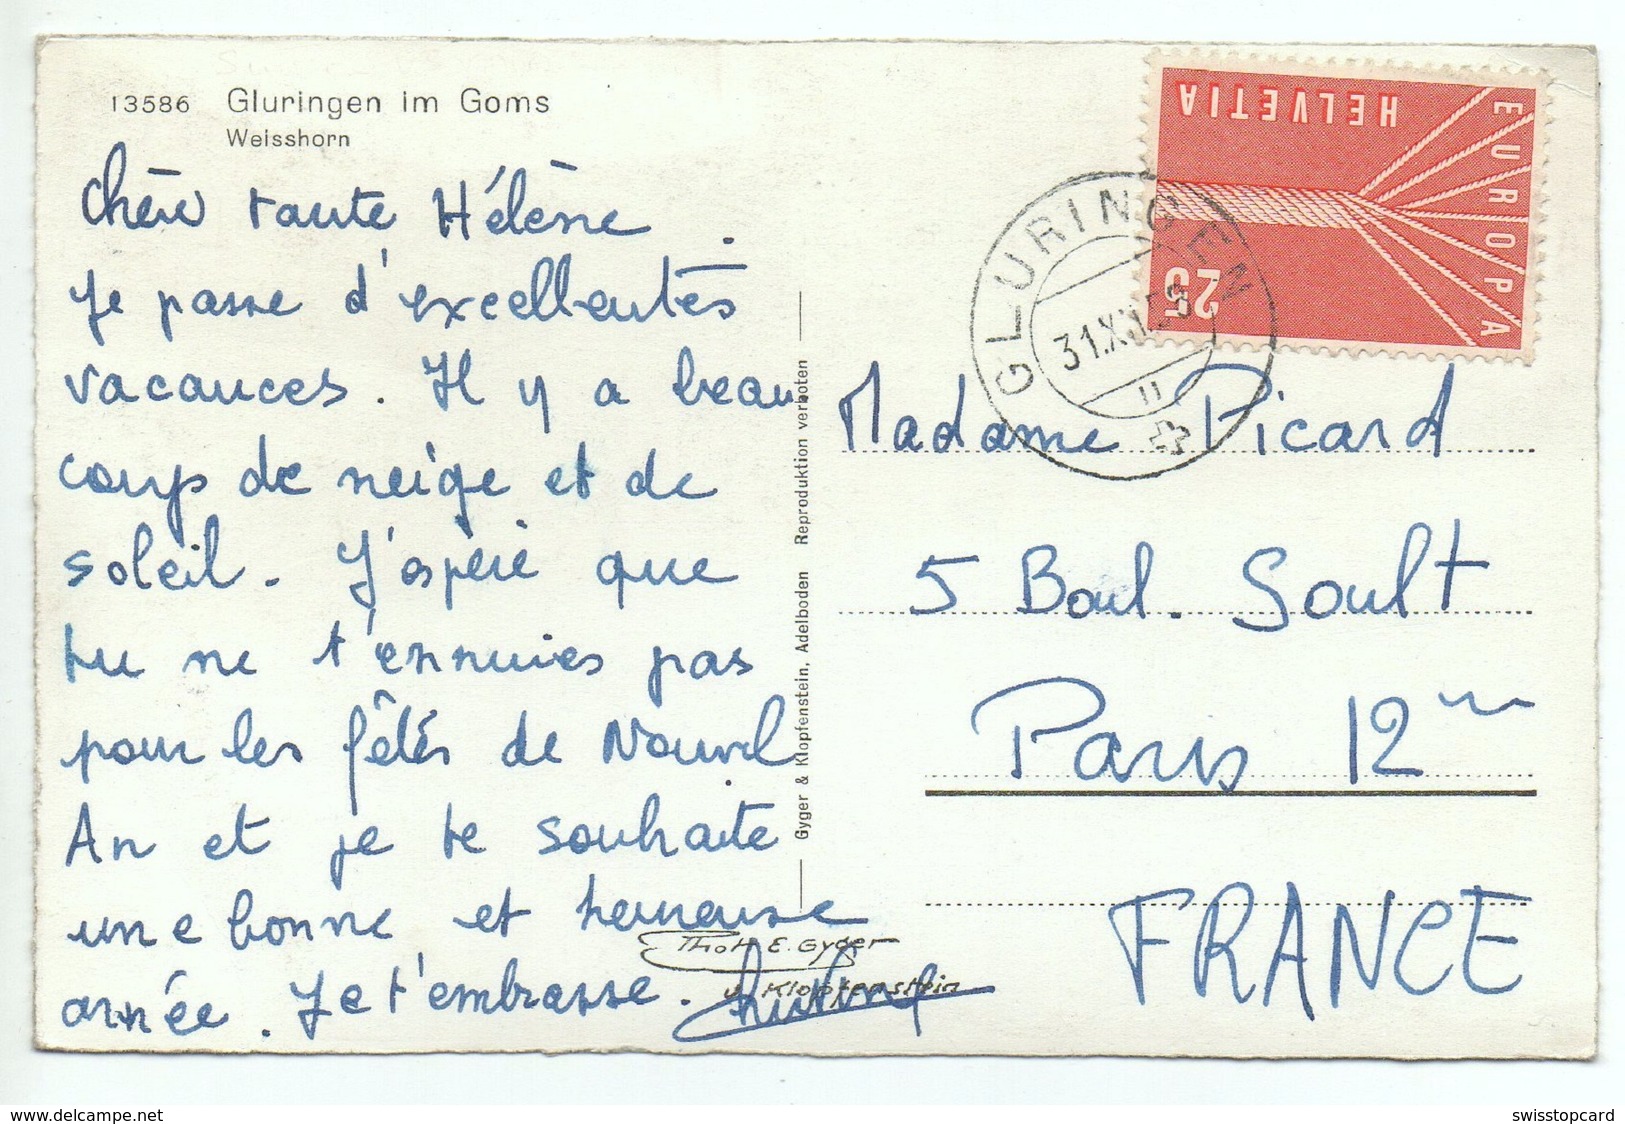 13586 Gluringen im Goms
Weisshorn
Chère tante Hélène.
Je passe d'excellentes
vacances. Il y a beau
coup de neige et de
soleil. J'espère que
tu ne t'ennuies pas
pour les fêtes de Nouvel
An et je te souhaite
une bonne et heureuse
année. Je t'embrasse.
Gyger & Klopfenstein, Adelboden Reproduktion verboten
Thoh E. Gyger
u. Klopfenstein
HELVETIA
EUROPA
25
GLURINGEN
31.XII.58
Madame Picard
5 Boul. Soult
Paris 12
FRANCE
www.delcampe.net
swisstopcard